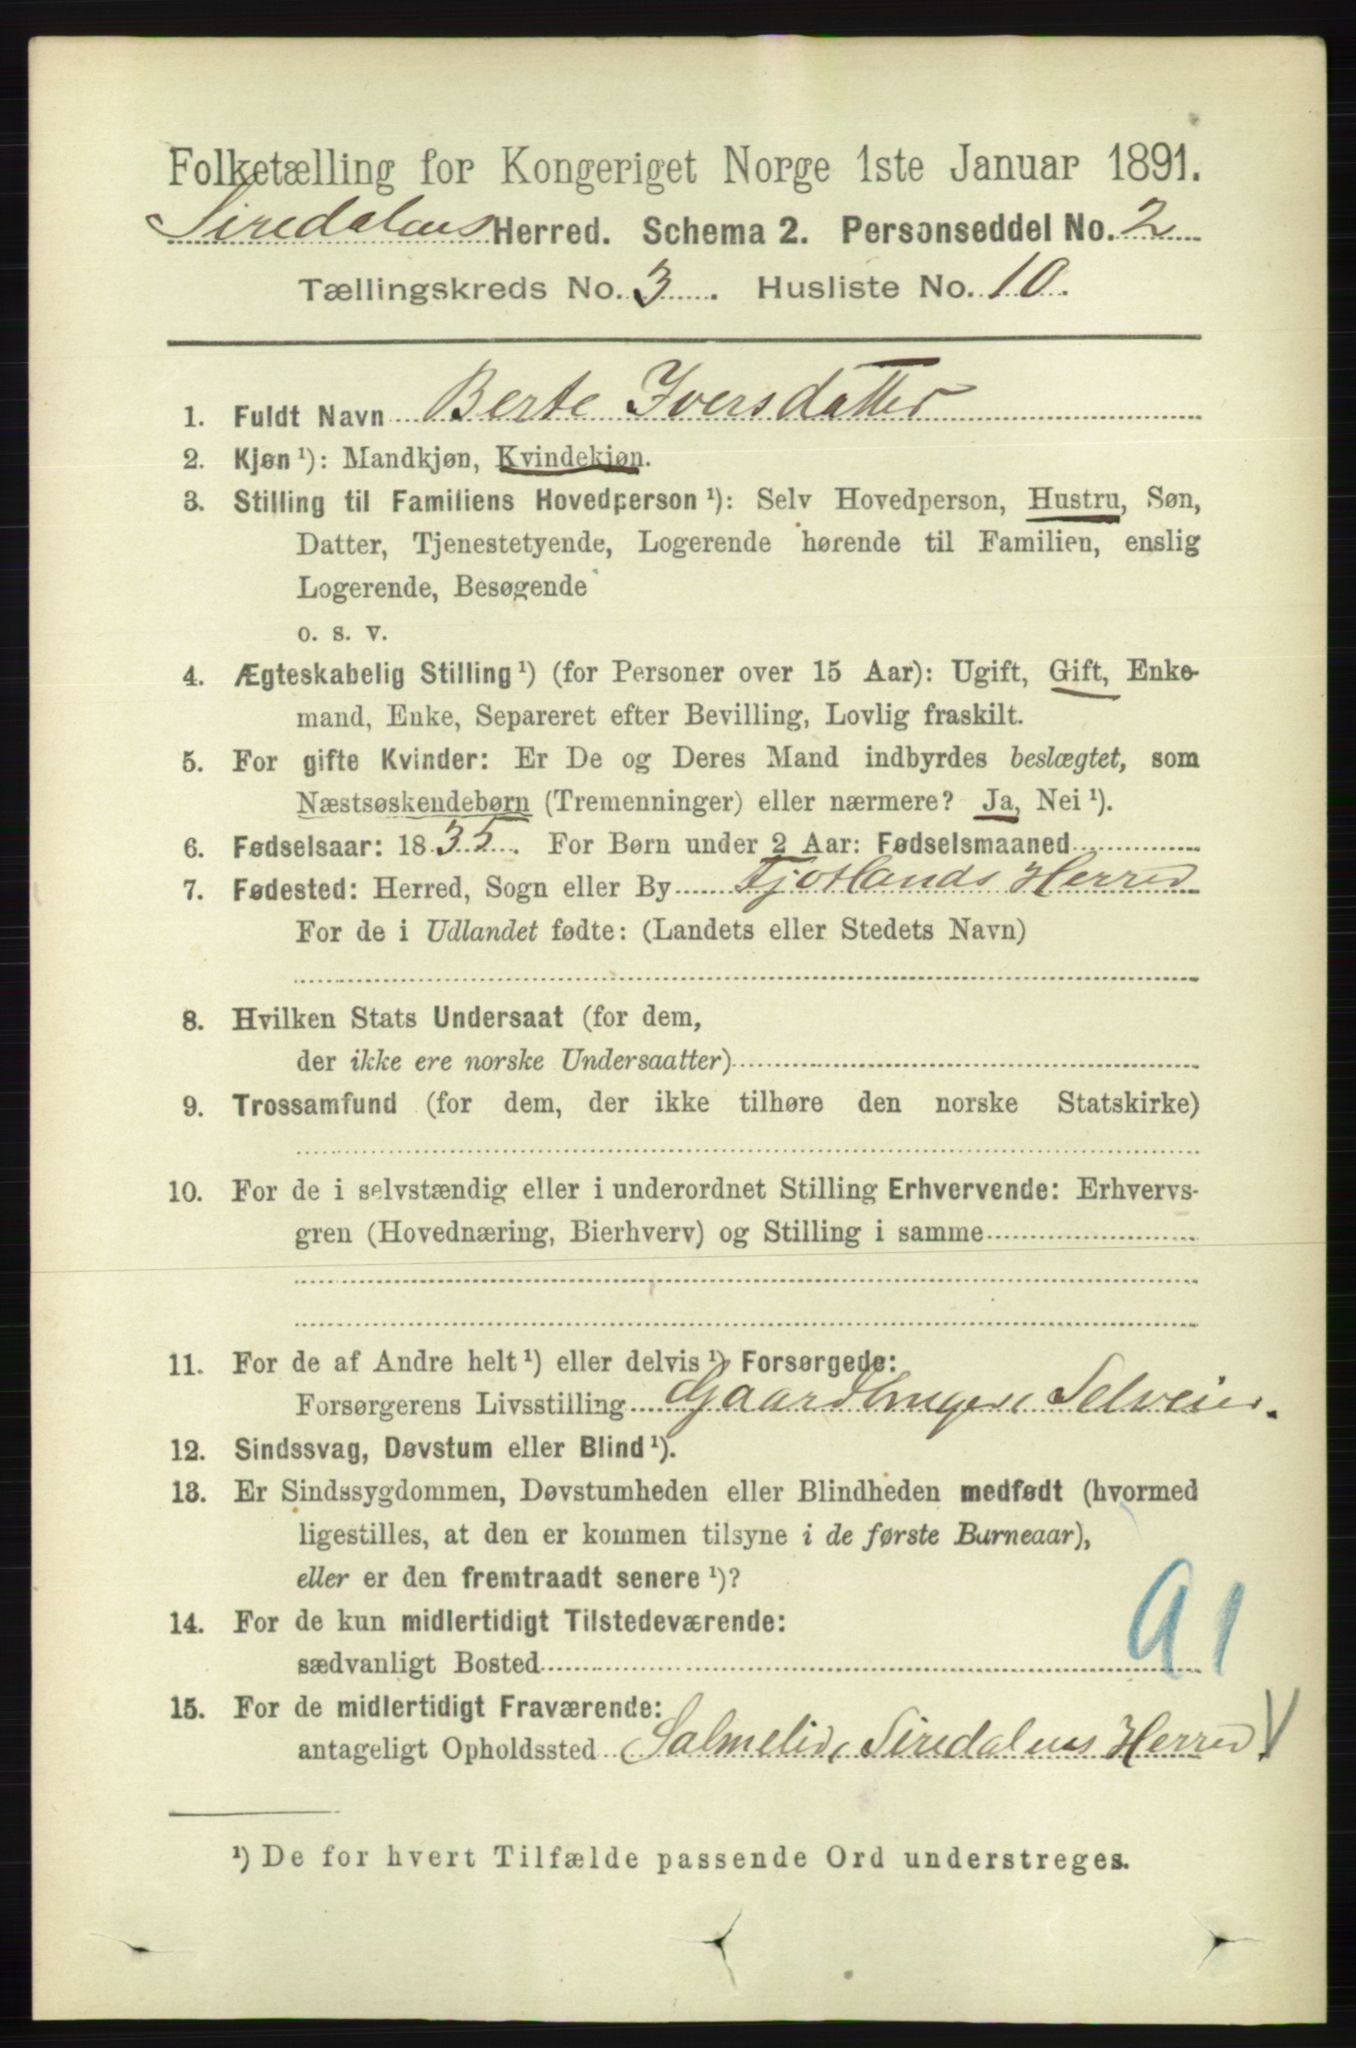 Folketælling for Kongeriget Norge 1ste Januar 1891.
Siredalens Herred. Schema 2. Personseddel No. 2
Tællingskreds No. 3. Husliste No. 10.
1. Fuldt Navn Berte Iversdatter
2. Kjøn ¹): Mandkjøn, Kvindekjøn.
3. Stilling til Familiens Hovedperson ¹): Selv Hovedperson, Hustru, Søn,
Datter, Tjenestetyende, Logerende hørende til Familien, enslig
Logerende, Besøgende
o. s. v.
4. Ægteskabelig Stilling ¹) (for Personer over 15 Aar): Ugift, Gift, Enke-
mand, Enke, Separeret efter Bevilling, Lovlig fraskilt.
5. For gifte Kvinder: Er De og Deres Mand indbyrdes beslægtet, som
Næstsøskendebørn (Tremenninger) eller nærmere? Ja, Nei ¹).
6. Fødselsaar: 1835. For Børn under 2 Aar: Fødselsmaaned
7. Fødested: Herred, Sogn eller By Fjotlands Herred
For de i Udlandet fødte: (Landets eller Stedets Navn)
8. Hvilken Stats Undersaat (for dem,
der ikke ere norske Undersaatter)
9. Trossamfund (for dem, der ikke tilhøre den norske Statskirke)
10. For de i selvstændig eller i underordnet Stilling Erhvervende: Erhvervs-
gren (Hovednæring, Bierhverv) og Stilling i samme
11. For de af Andre helt ¹) eller delvis ¹) Forsørgede:
Forsørgerens Livsstilling Gaardbruger, Selveier.
12. Sindssvag, Døvstum eller Blind ¹).
13. Er Sindssygdommen, Døvstumheden eller Blindheden medfødt (hvormed
ligestilles, at den er kommen tilsyne i de første Barneaar),
eller er den fremtraadt senere ¹)?
14. For de kun midlertidigt Tilstedeværende:
sædvanligt Bosted
91
15. For de midlertidigt Fraværende:
antageligt Opholdssted Salmelid, Siredalens Herred V
¹) De for hvert Tilfælde passende Ord understreges.